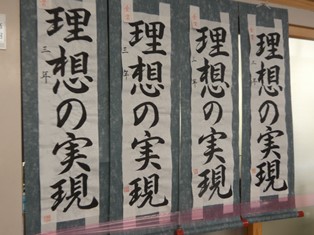 理想の実現
三年
理想の実現
三年
理想の実現
三年
理想の実現